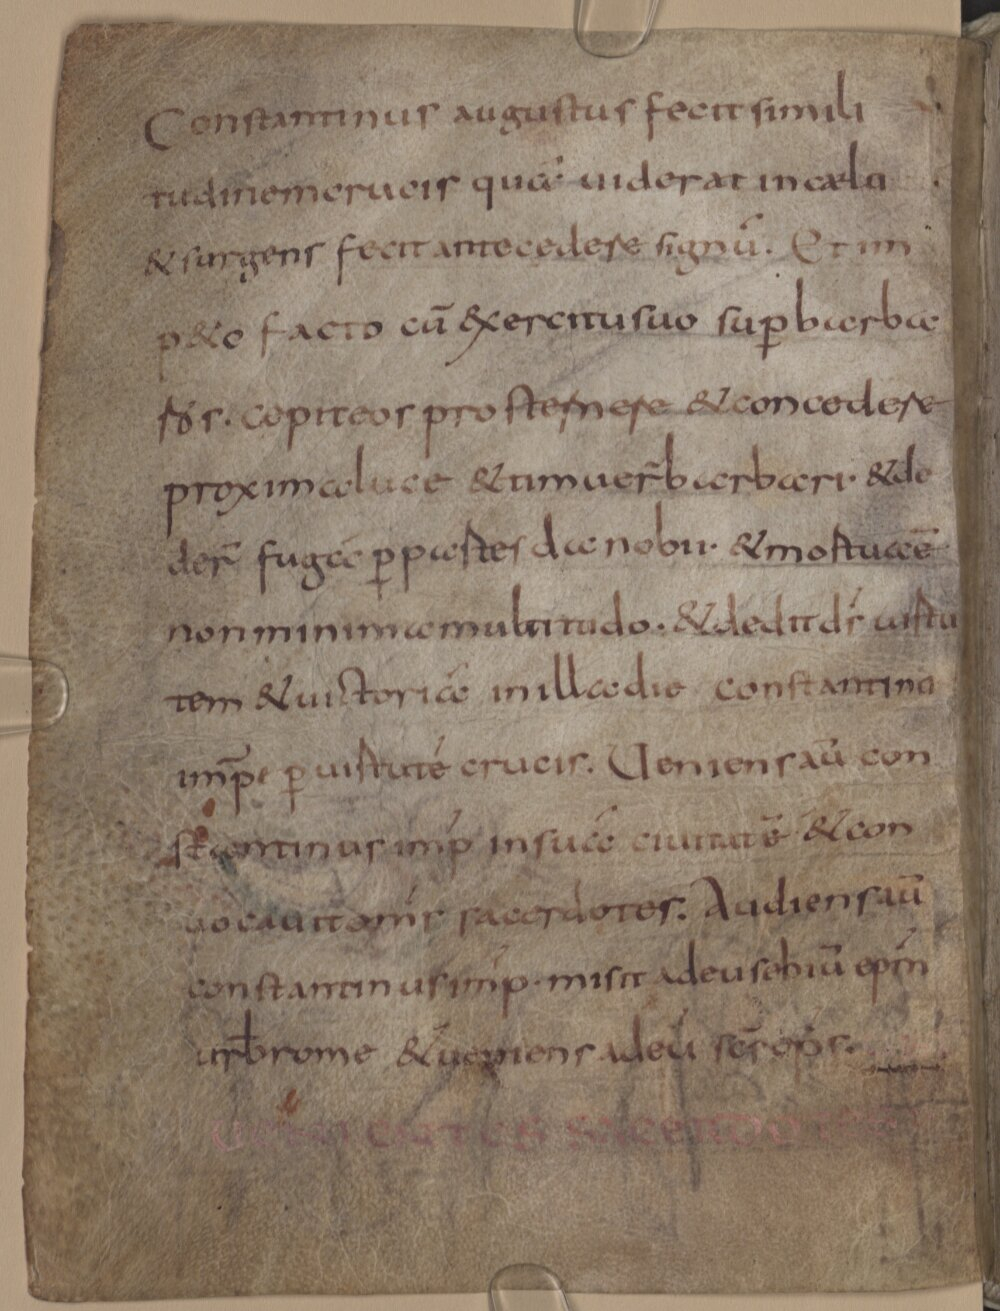 Constantinus augustus fecit simili
tudinem crucis quā uiderat in cælo
& surgens fecit antecedere signū. Et im
p&o facto cū &xercitu suo sup barba
ros. copit eos prosternere & concedere
proxima luce & timuer̄ barbari. & de
der̄ fugā p partes danobii. & mortua ē
non minima multitudo. & dedit dś uirtu
tem & uictoriā in illa die constantino
imp̄r p uirtutē crucis. Ueniens aū con
stantinus imp in suā ciuitatē & con
uocauit omīs sacerdotes. Audiens aū
constantinus imp. misit ad eusebiū ep̄m
urb rome & ueniens ad eū
SACERDO